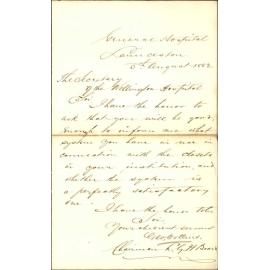 General Hospital
Launceston
5th August 1882
The Secretary
of the Wellington Hospital
Sir
I have the honor to
ask that you will be good
enough to inform me what
system you have in use in
connection with the closets
in your institution, and
whether the system is
a perfectly satisfactory
one.
I have the honor to be
Sir
Your obedient servant
Geo Collins
Chairman L. G. H Board